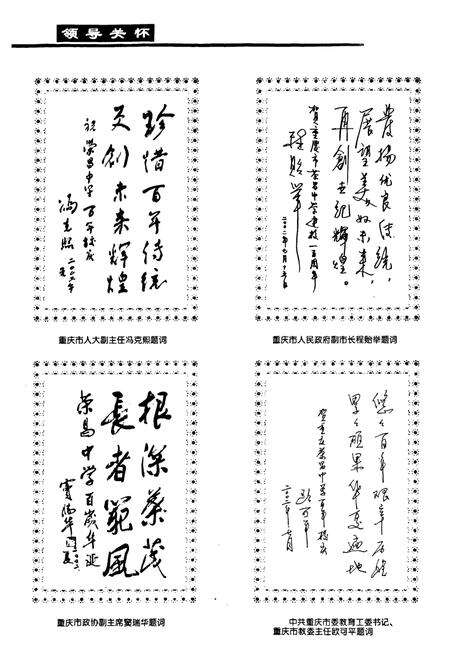 领导关怀
珍惜百年传统
又创未来辉煌
祝荣昌中学百年校庆
冯克熙
重庆市人大副主任冯克熙题词
发扬优良传统，
展望美好未来，
再创世纪辉煌。
贺重庆市荣昌中学建校一百周年
程贻举
重庆市人民政府副市长程贻举题词
根深叶茂
长者风范
荣昌中学百岁华诞
窦瑞华
重庆市政协副主席窦瑞华题词
悠悠百年艰辛历程
累累硕果华夏遍地
贺重庆荣昌中学百年校庆
欧可平
中共重庆市委教育工委书记、
重庆市教委主任欧可平题词